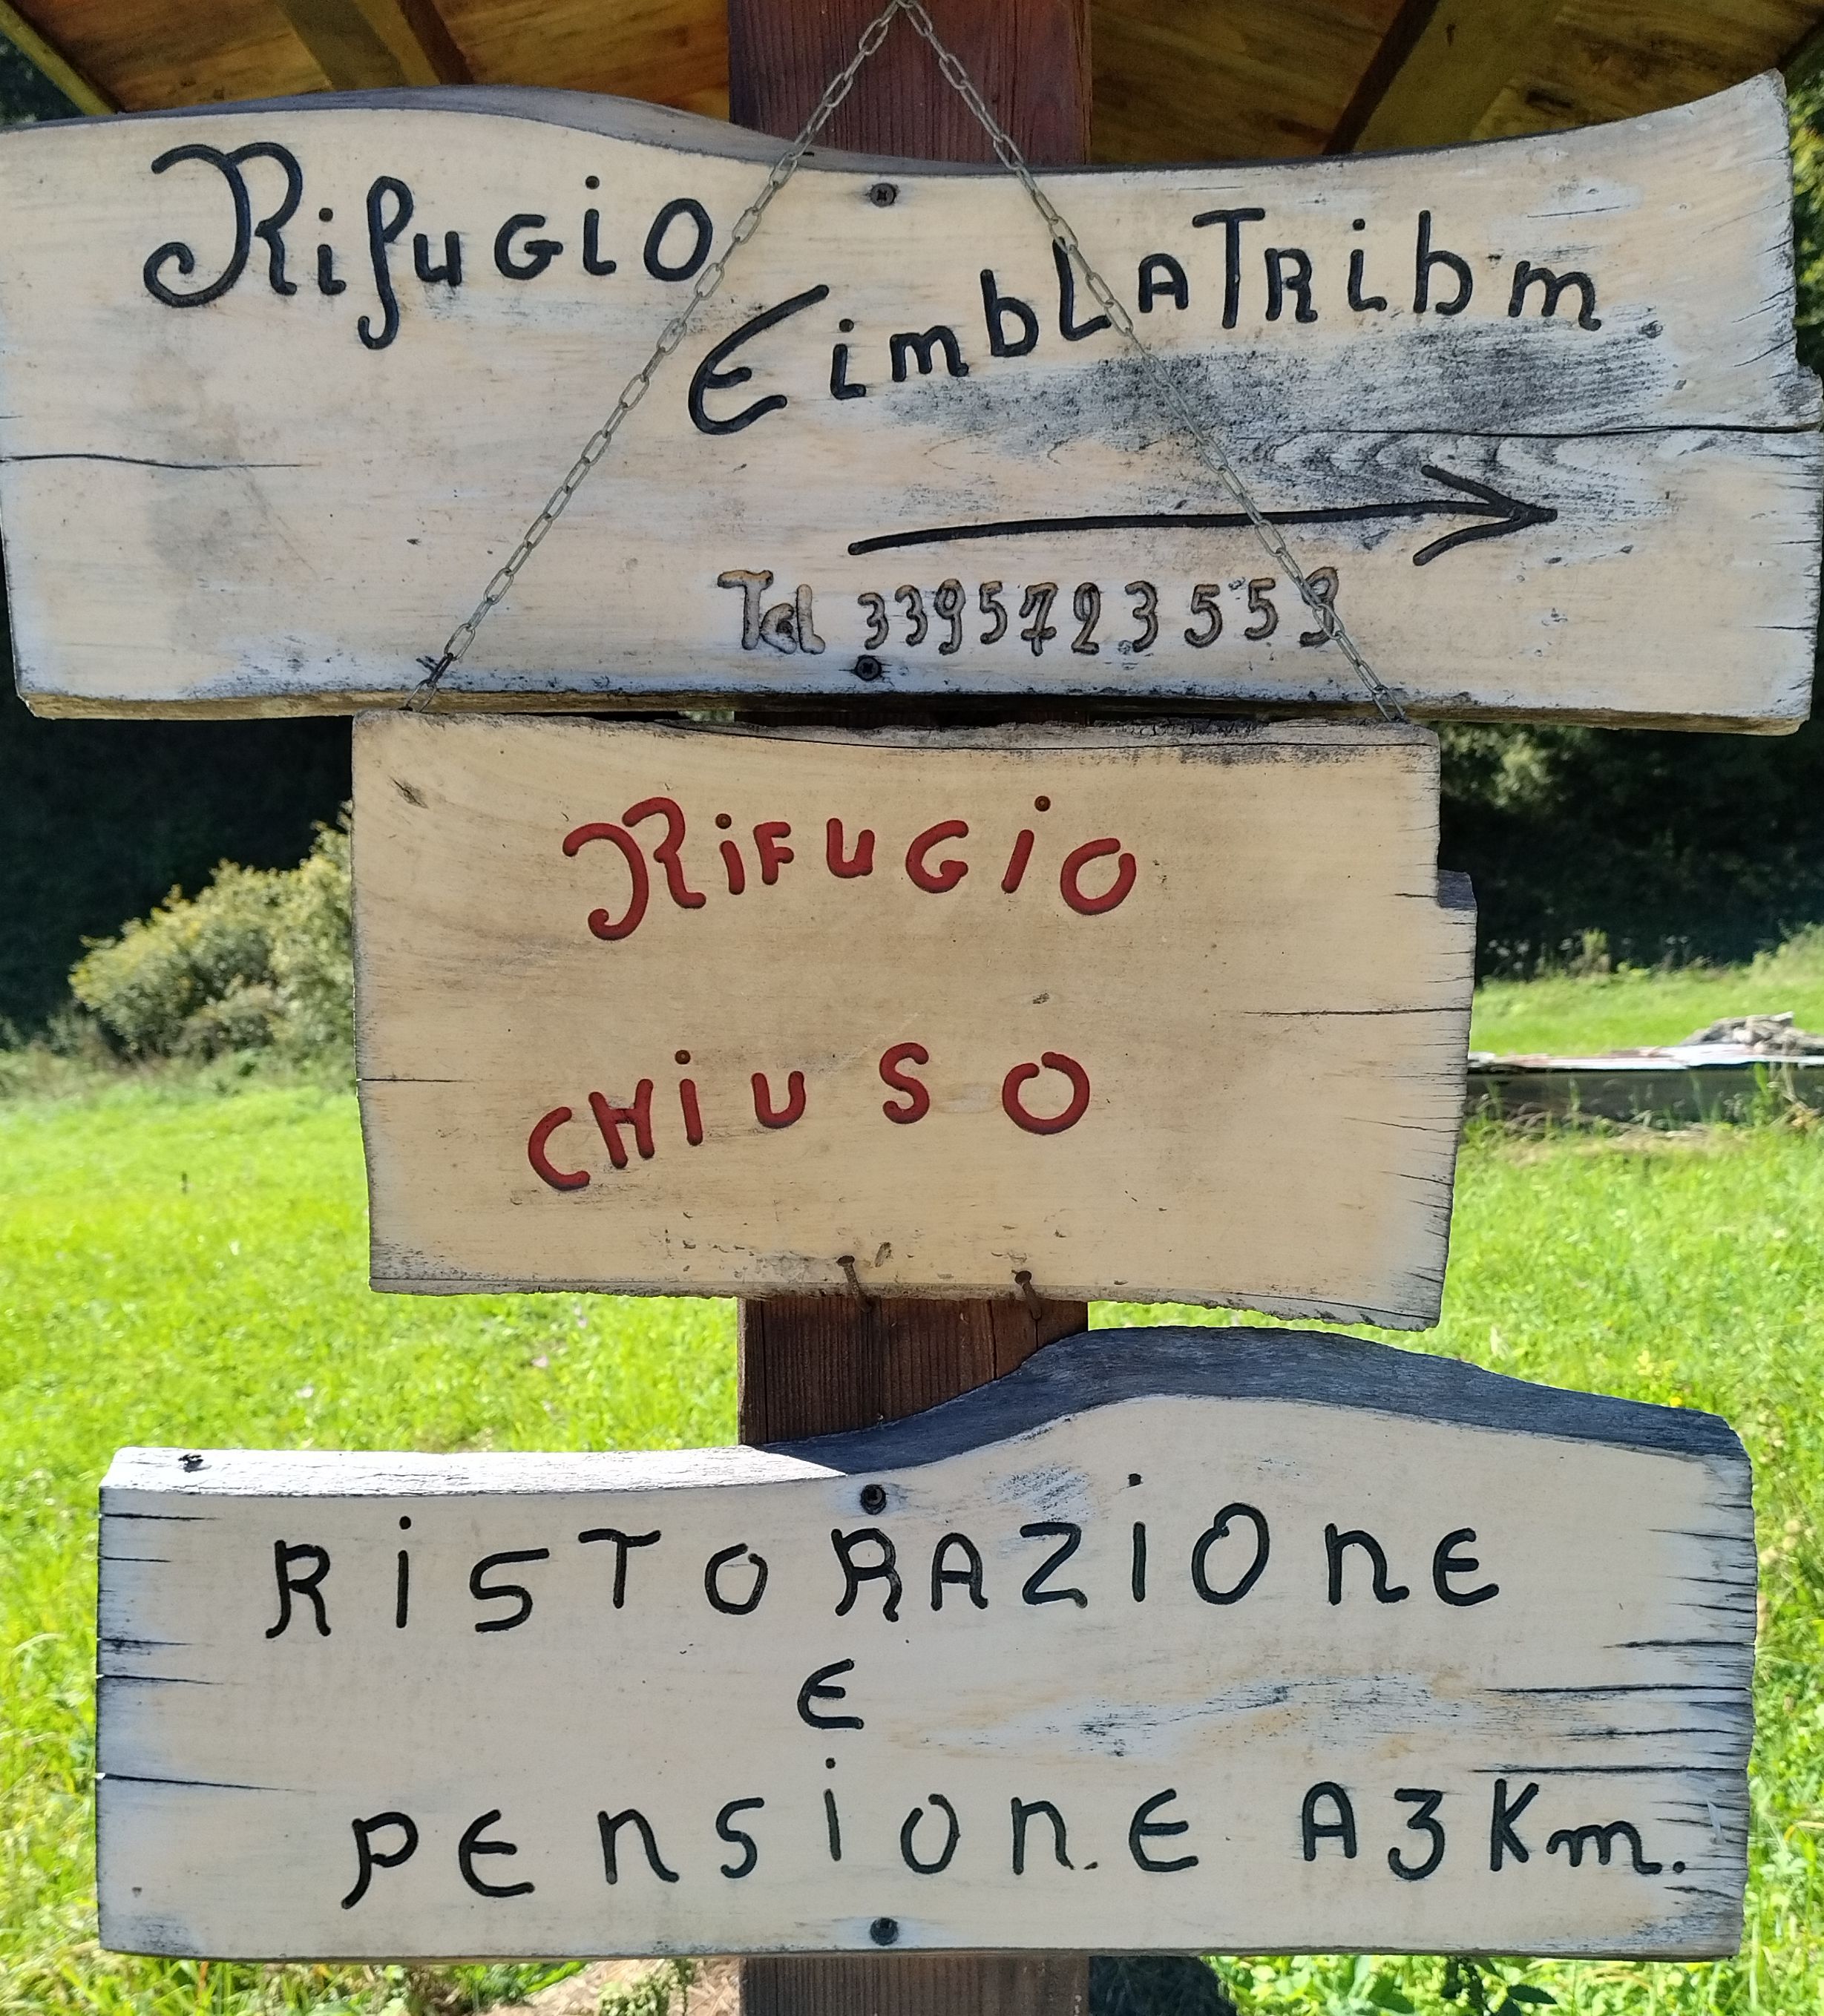 Rifugio
EimbLATRibm
Tel 3395723553
RiFUGiO
CHiUSO
RiSTORAZiOnE
E
PEnSiOnE A 3 Km.